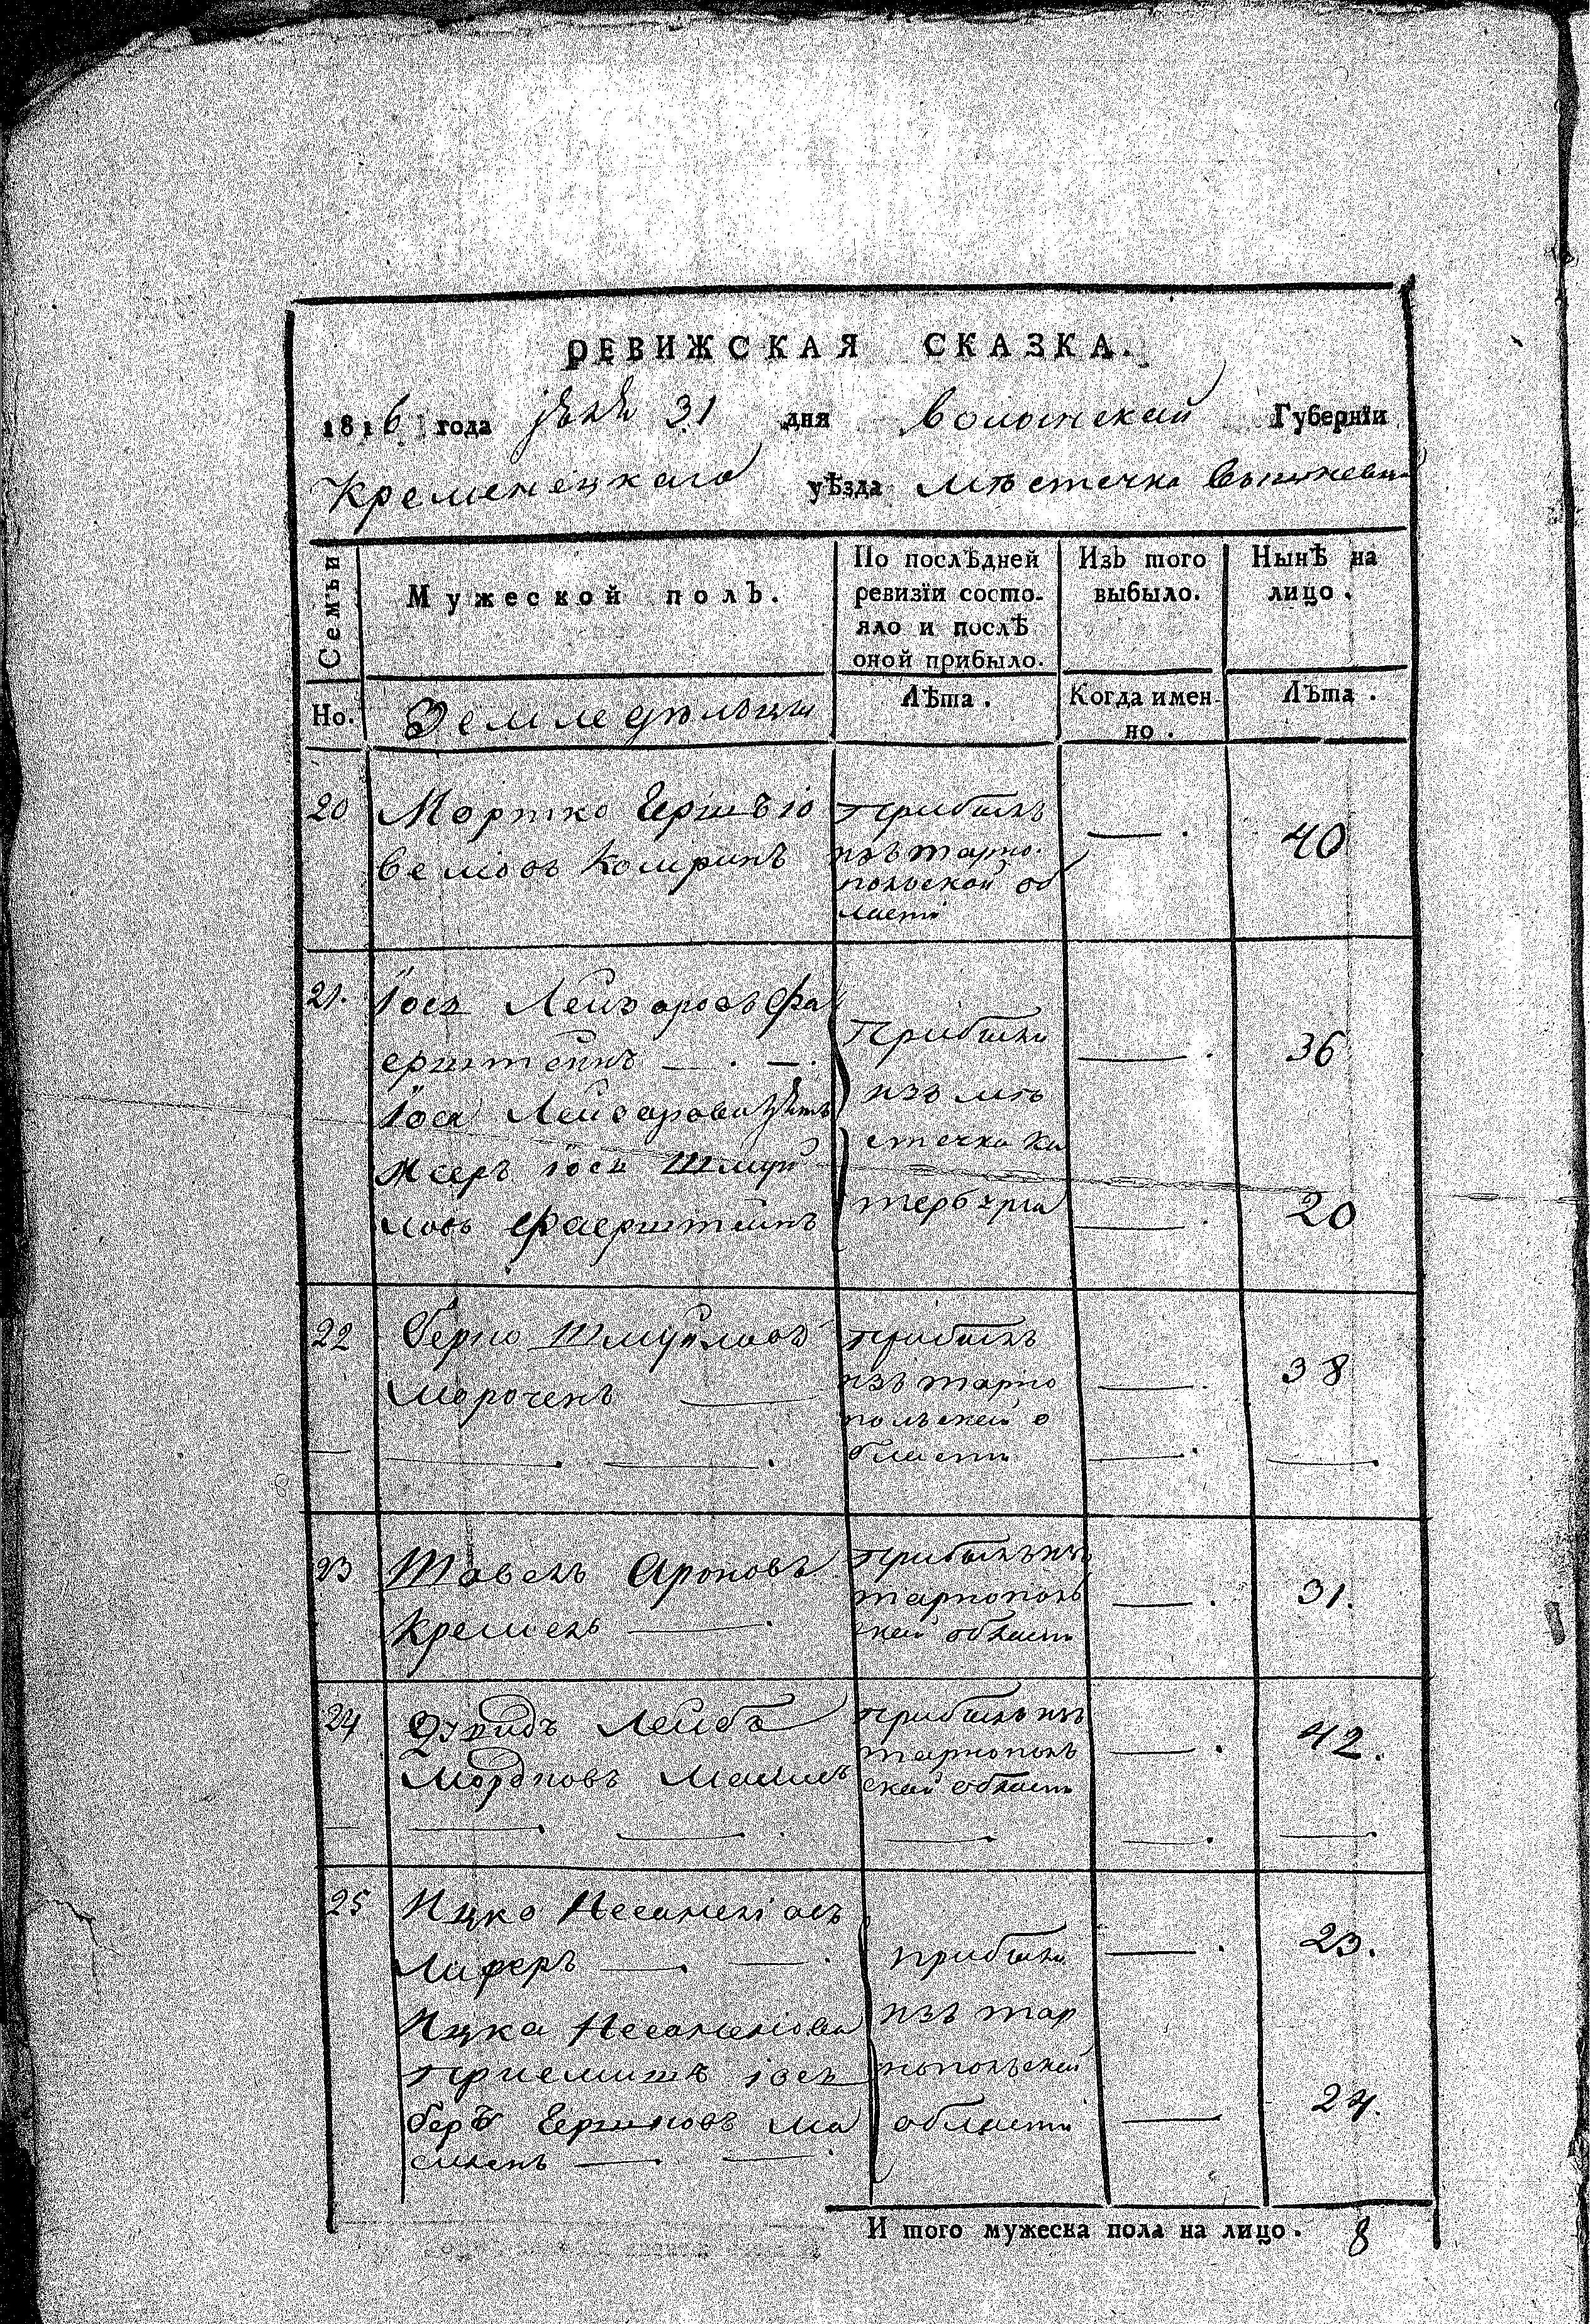 РЕВИЖСКАЯ СКАЗКА.
1816 года 31 дня Волынской Губернїи
Кременецкаго уѣзда мѣстечка Вышневца
Семьи
Мужеской полъ.
По послѣдней ревизїи состо-
яло и послѣ
оной прибыло.
Изъ того
выбыло.
Нынѣ на
лицо.
Но.
Земледѣльцы
Лѣта.
Когда имен-
но.
Лѣта.
20 Мортко Герш
прибылъ
изъ тарно-
польской об
ласти
— .
40
21. Іось Лейзоровъ Фа
ерштейнъ — . — .
Іося Лейзорова
Іось Шмуй
ловъ Фаерштейнъ
прибыли
изъ мѣ
стечка Ка
тербурга
— .
36
— .
20
22 Берко Шмуйловъ
—
прибылъ
изъ тарно
польской о
бласти
— .
38
23 Ароновъ
Кремень — .
прибылъ изъ
тарнополь
ской области
— .
31.
24 Лейба
Мордковъ
прибылъ изъ
тарнополь
ской области
— .
42.
25 Ицко
Лиферъ — . — .
Ицка
приемышъ Іось
Беръ Гершковъ
прибыли
изъ тар
нопольской
области
— .
23.
—
24.
И того мужеска пола на лицо. 8